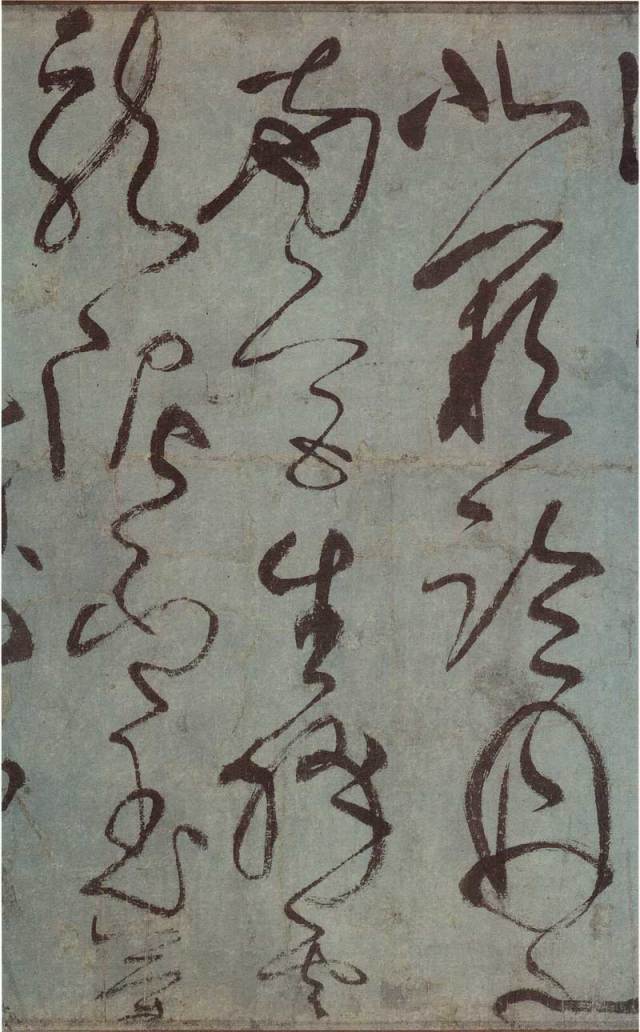 北闕臨丹水
南宮生絳雲
龍泥印玉簡